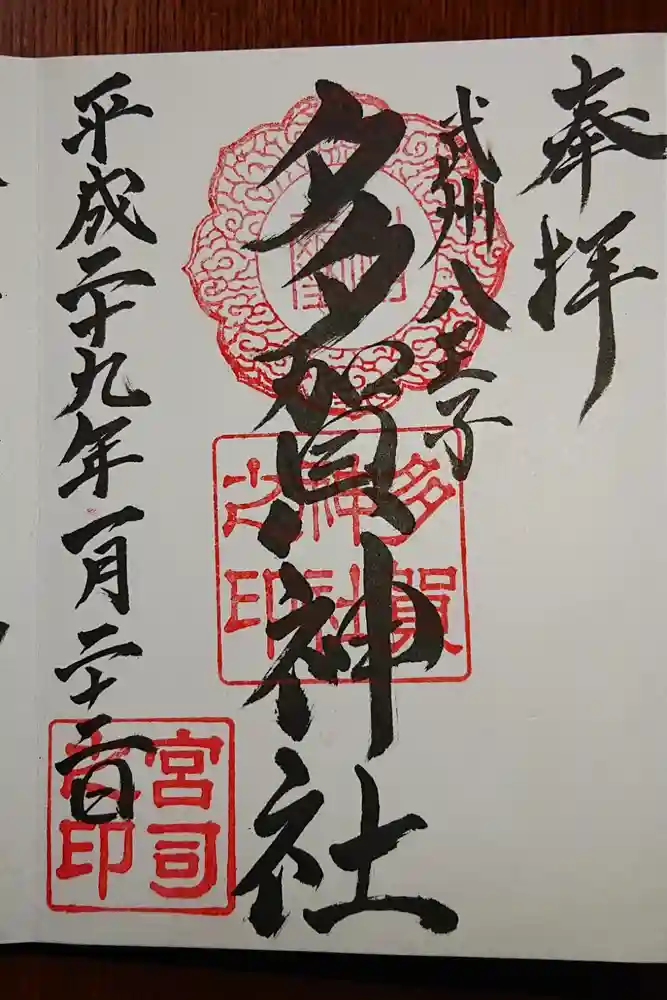 奉拝
武州八王子
多賀神社
平成二十九年一月二十二日
多賀
神社
之印
宮司
之印